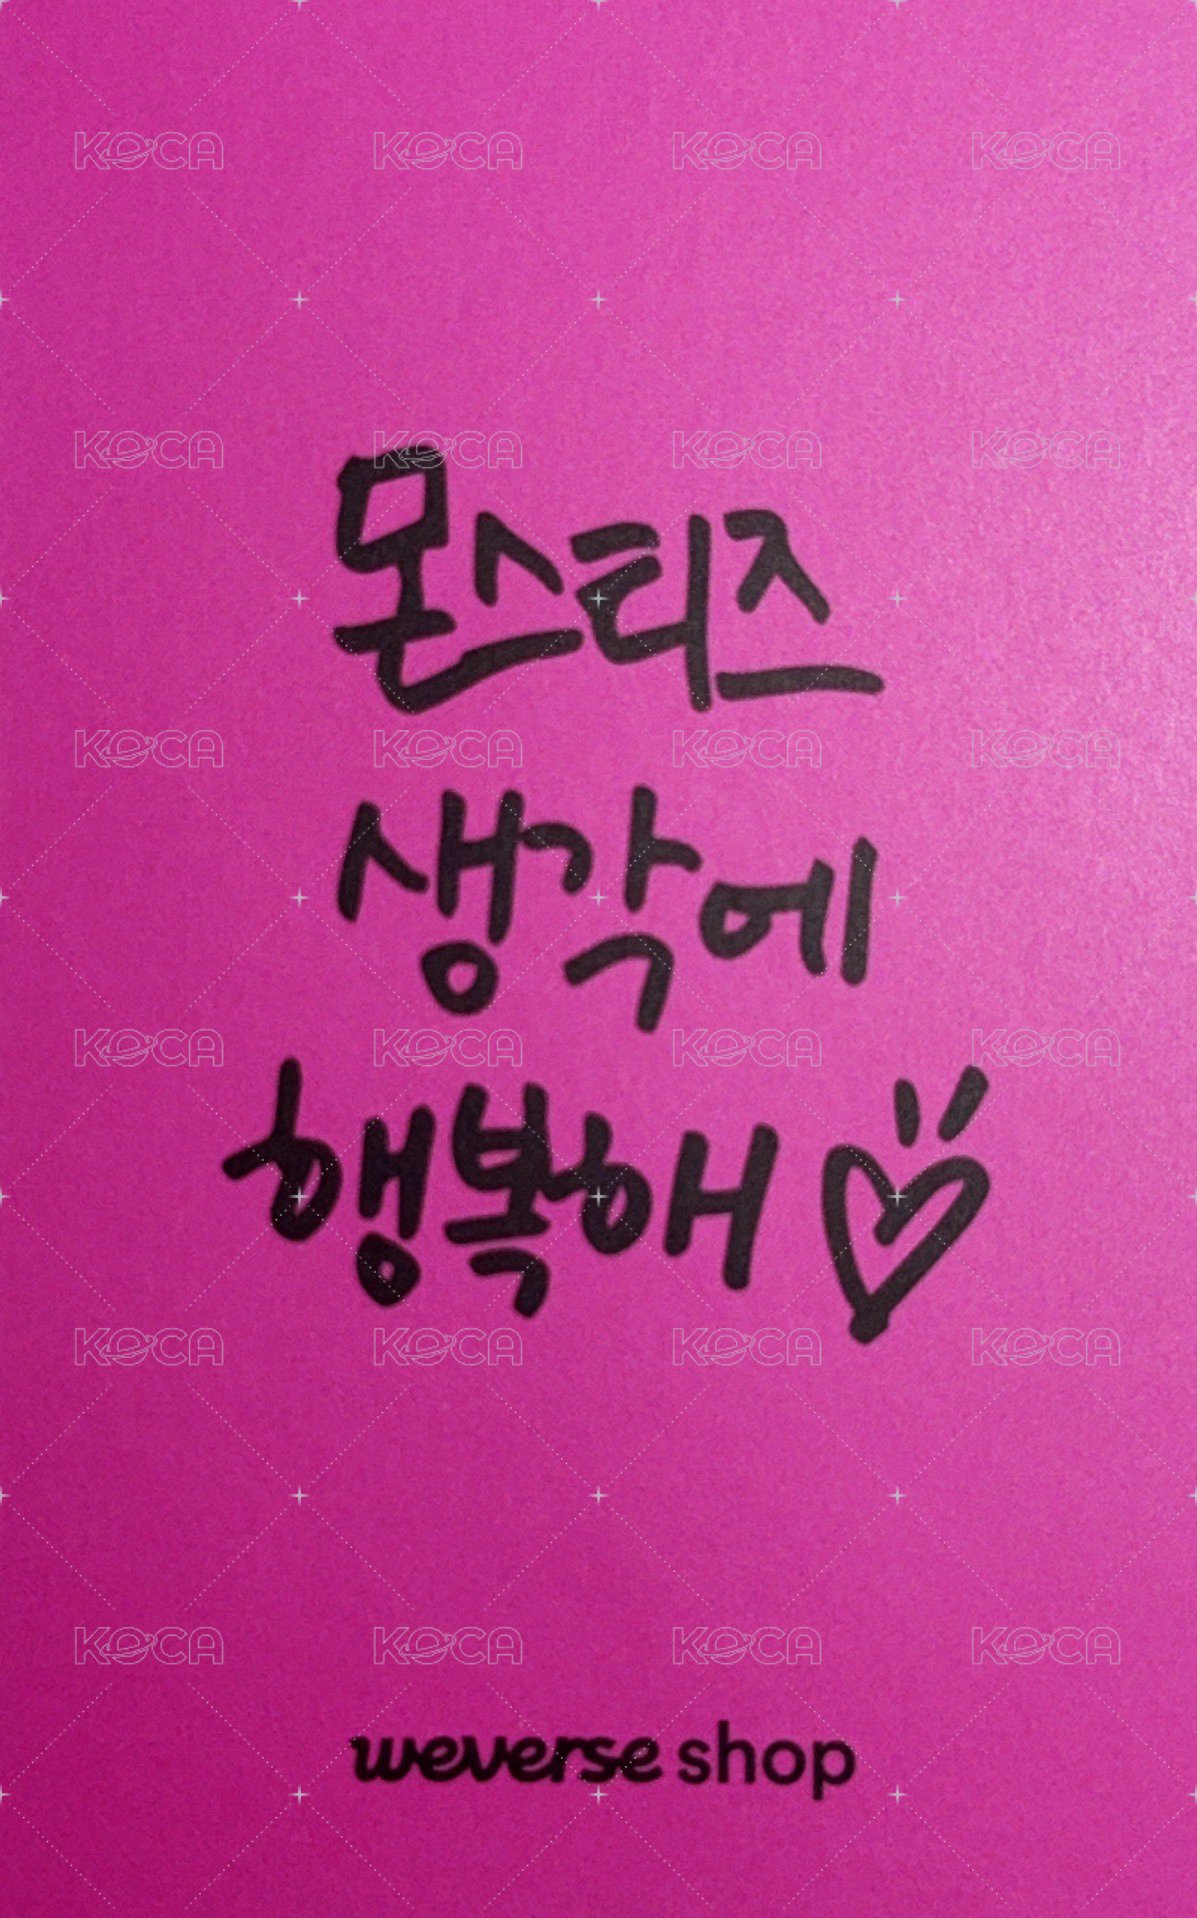 몬스티즈
생각에
행복해♡
weverse shop
KOCA KOCA KOCA KOCA
KOCA KOCA KOCA KOCA
KOCA KOCA KOCA KOCA
KOCA KOCA KOCA KOCA
KOCA KOCA KOCA KOCA
KOCA KOCA KOCA KOCA